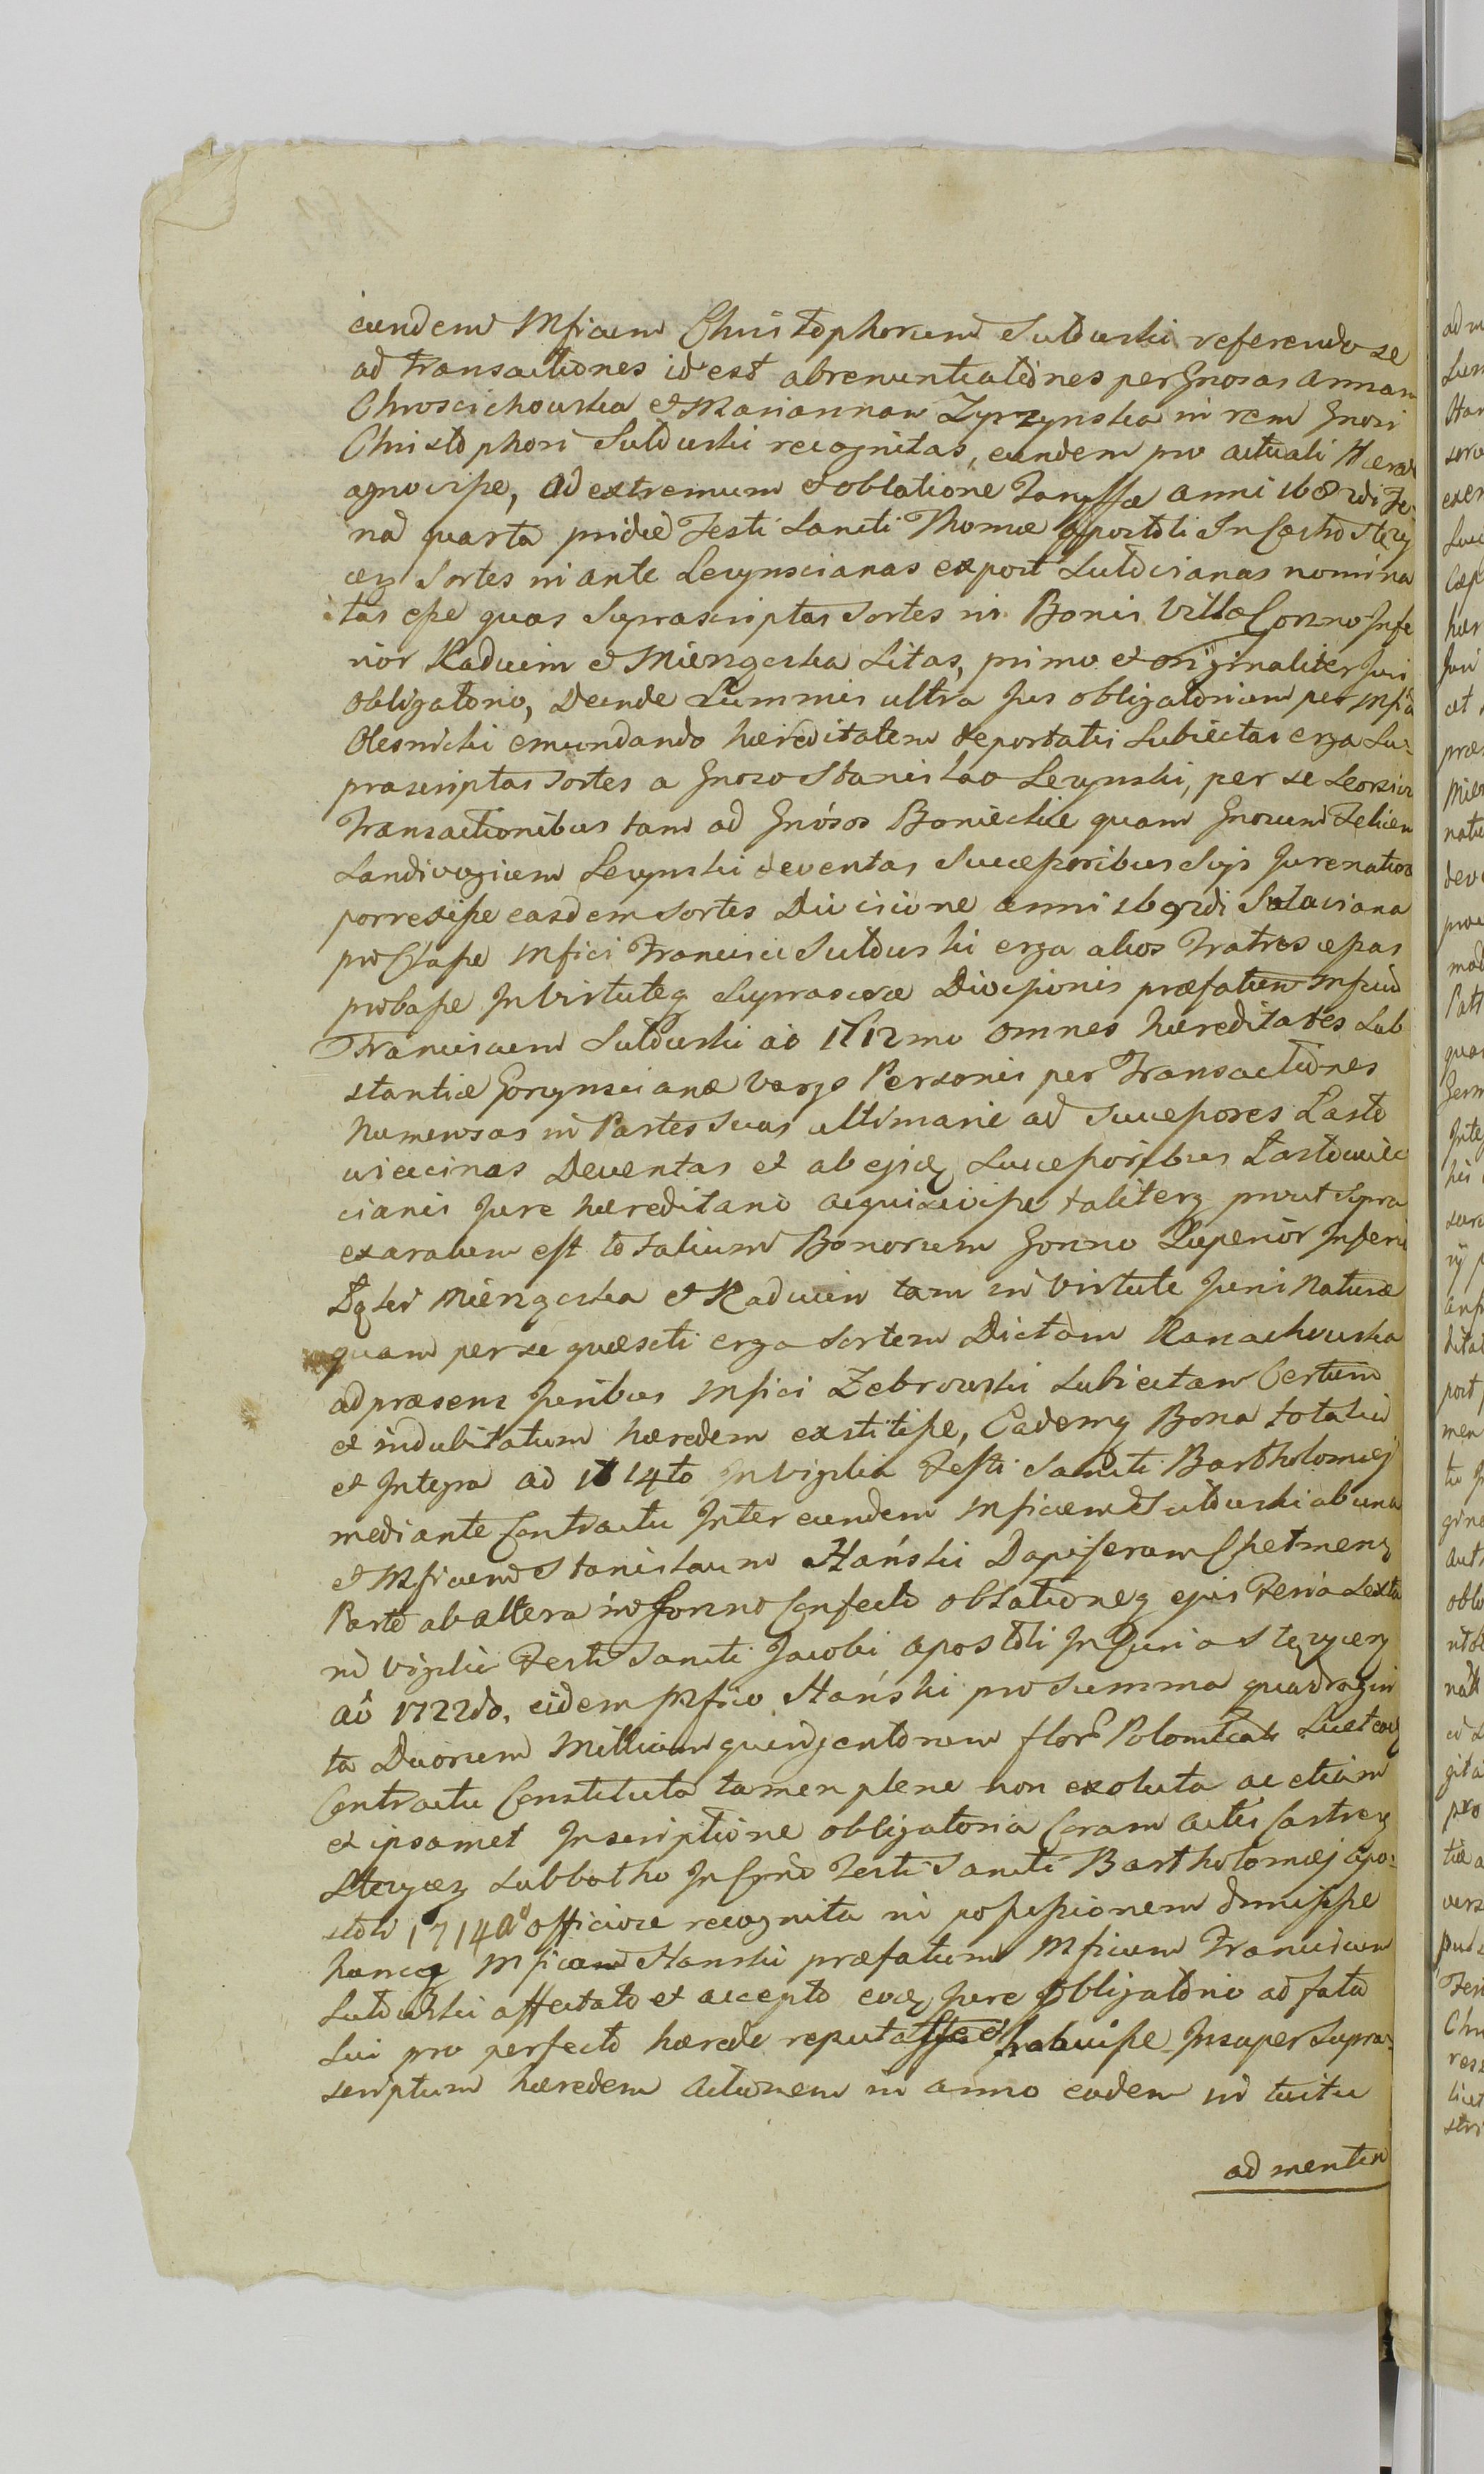 eundem Mficum Christophorum Suldurski referendo se
ad transactiones id est abrenuntiationes per Gnosas Annam
Chroscichowska et Mariannam Zyrzynska in rem Gnosi
Christophori Suldurski recognitas, eundem pro actuali Hærede
agnovisse, ad extremum et oblatione Taryffæ anni 168 Fe
ria quarta pridie Festi Sancti Thomæ Apostoli In Castro Stezy
cen Sortes in ante Lewynscianas ex post Suldcianas nomina
tas esse quas Suprascriptas Sortes in Bonis Villæ Gorzno Infe
rior Kadwin et Mierzączka Sitas, primo et originaliter Juri
obligatorio, Deinde Summis ultra Jus obligatorium per Mfcu
Olesnicki emundando hæreditatem deportatis Subiectas erga Su-
prascriptas Sortes a Gnoso Stanislao Lewynski, per se Seorsiv
Transactionibus tam ad Gnosos Bonieckie quam Gnosum Felicem
Landivogium Lewynski deventas Successoribus Suis Jure
porrexisse easdem Sortes Divisione anni 169 Sulaciana
pro Classe Mfici Francisci Suldurski erga alios Fratres cessas
probasse In Virtuteq Suprascræ Divisionis præfatum Mficum
Franciscum Suldurski aō 1712mo omnes hæreditates Sub
stantiæ Gorzynscianæ Varys Personis per Transactiones
numerosas in Partes Suas ultimarie ad Successores Lasto
wieccinas Deventas et ab ejsdq Successoribus Lastowiec
cianis Jure hæreditario acquisivisse taliterq prout Supra
exaratum est totalium Bonorum Gorzno Superior Inferi
Mierzączka et Kadwin tam in Virtute Juris Naturæ
quam per se quæsiti erga Sortem Dictam Kanachowska
ad præsens Juribus Mfici Zebrowski Subiectam Certum
et indubitatum hæredem exstitisse, Eademq Bona totalia
et Integra aō 1714to In Vigilia Festi Sancti Bartholomæj
mediante Contractu Inter eundem Mficum Suldurski ab una
et Mficum Stanislaum Stański Dapiferum Chelmenz
Parte ab altera in Gorzno Confecto oblationeq ejus Feria Sexta
in Vigilia Festi Sancti Jacobi Apostoli In Curia Stezycen
aō 1722do, eidem Mfico Stański pro Summa quadragin
ta Duorum Millium quingentorum flor Polonical Suo
Contractu Constituta tamen plene non exoluta ac etiam
et ipsamet Inscriptione obligatoria Coram Actis Castren
Stezycen Sabbatho In Crno Festi Sancti Bartholomæj Apo-
stoli 1714 aō officiose recognita in possessionem dimisisse
huncq Mficum Stanski præfatum Mficum Franciscum
Suldurski affectato et accepto eoq Jure obligatorio ad fata
Sui pro perfecto hærede reputasse et habuisse Insuper Supra-
scriptum hæredem Actionem in anno eodem in tuitu
ad mentem